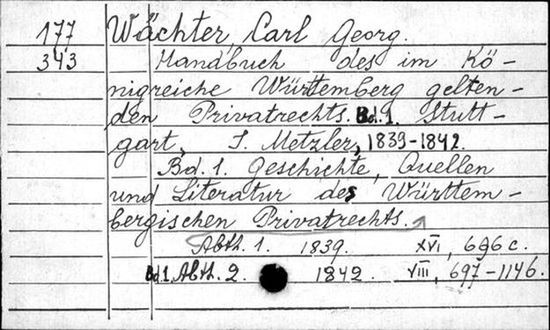 177 Wächter, Carl Georg.
343 Handbuch des im Kö-
nigreiche Württemberg gelten-
den Privatrechts. Bd. 1. Stutt-
gart, I. Metzler, 1839-1842.
Bd. 1. Geschichte, Quellen
und Literatur des Württem-
bergischen Privatrechts.
Abth. 1. 1839. XVI, 696 c.
Bd. 1. Abth. 2. 1842. VIII, 697-1146.